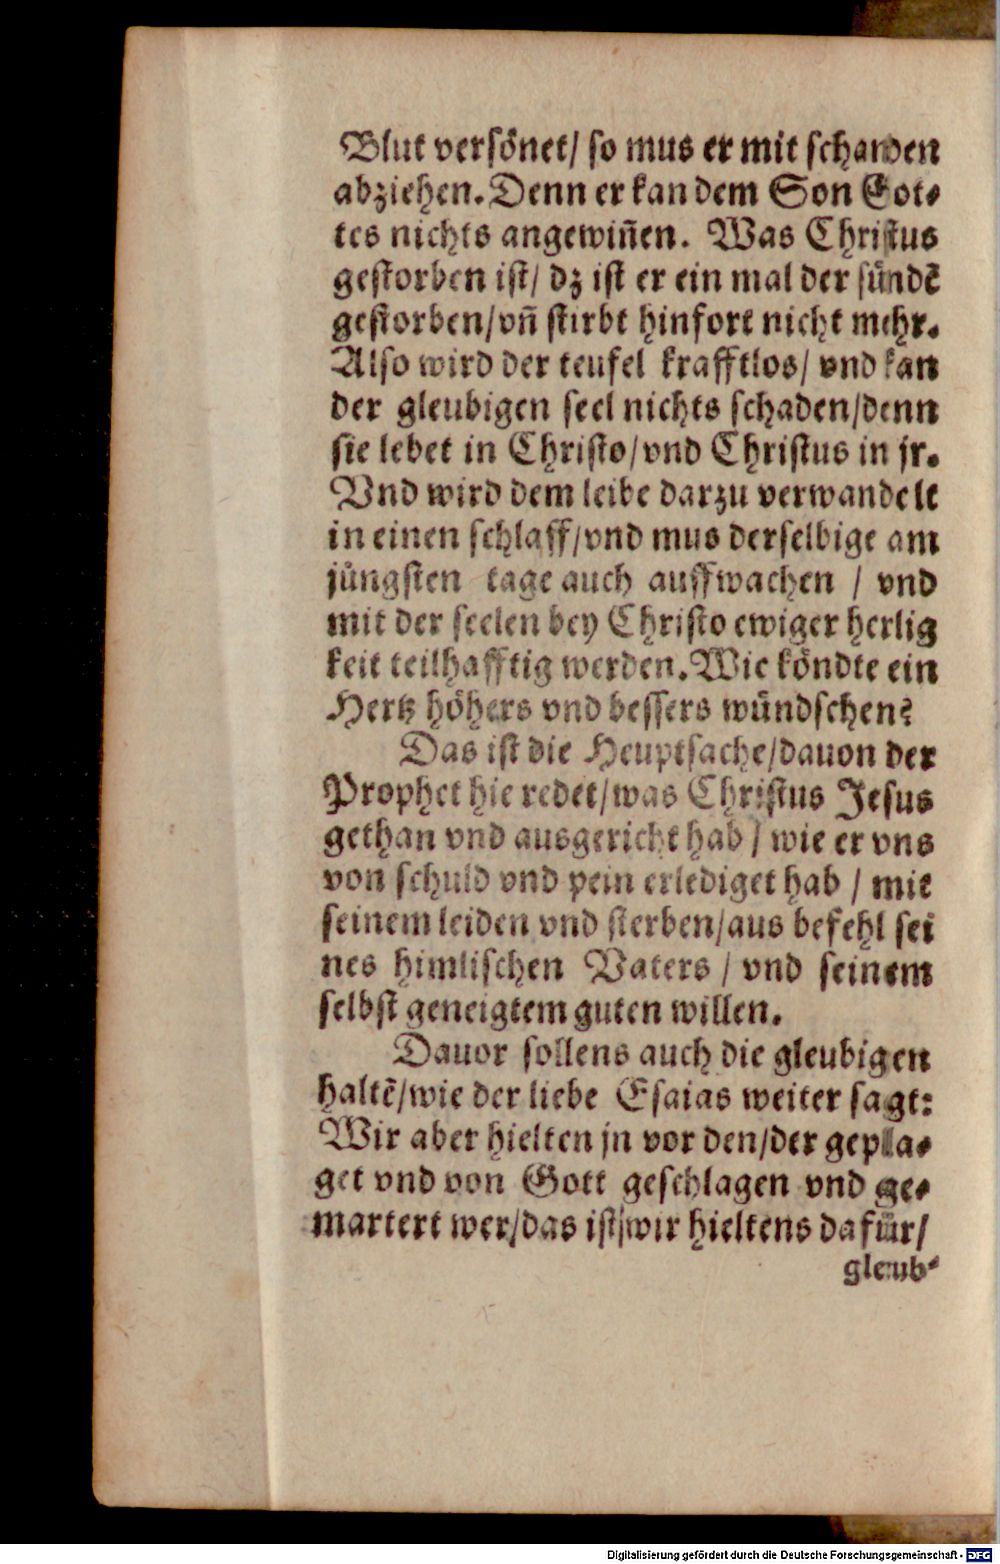 Blut versönet/ so mus er mit schanden
abziehen. Denn er kan dem Son Got⸗
tes nichts angewiñen. Was Christus
gestorben ist/ dz ist er ein mal der sündẽ
gestorben/ vñ stirbt hinfort nicht mehr.
Also wird der teufel krafftlos/ vnd kan
der gleubigen seel nichts schaden/ denn
sie lebet in Christo/ vnd Christus in jr.
Vnd wird dem leibe darzu verwandelt
in einen schlaff/ vnd mus derselbige am
jüngsten tage auch auffwachen / vnd
mit der seelen bey Christo ewiger herlig
keit teilhafftig werden. Wie köndte ein
Hertz höhers vnd bessers wündschen?
Das ist die Heuptsache/ dauon der
Prophet hie redet/ was Christus Jesus
gethan vnd ausgericht hab / wie er vns
von schuld vnd pein erlediget hab / mit
seinem leiden vnd sterben/ aus befehl sei
nes himlischen Vaters / vnd seinem
selbst geneigtem guten willen.
Dauor sollens auch die gleubigen
haltẽ/ wie der liebe Esaias weiter sagt:
Wir aber hielten jn vor den/ der gepla⸗
get vnd von Gott geschlagen vnd ge⸗
martert wer/ das ist/ wir hieltens dafür/
gleub⸗
Digitalisierung gefördert durch die Deutsche Forschungsgemeinschaft - DFG